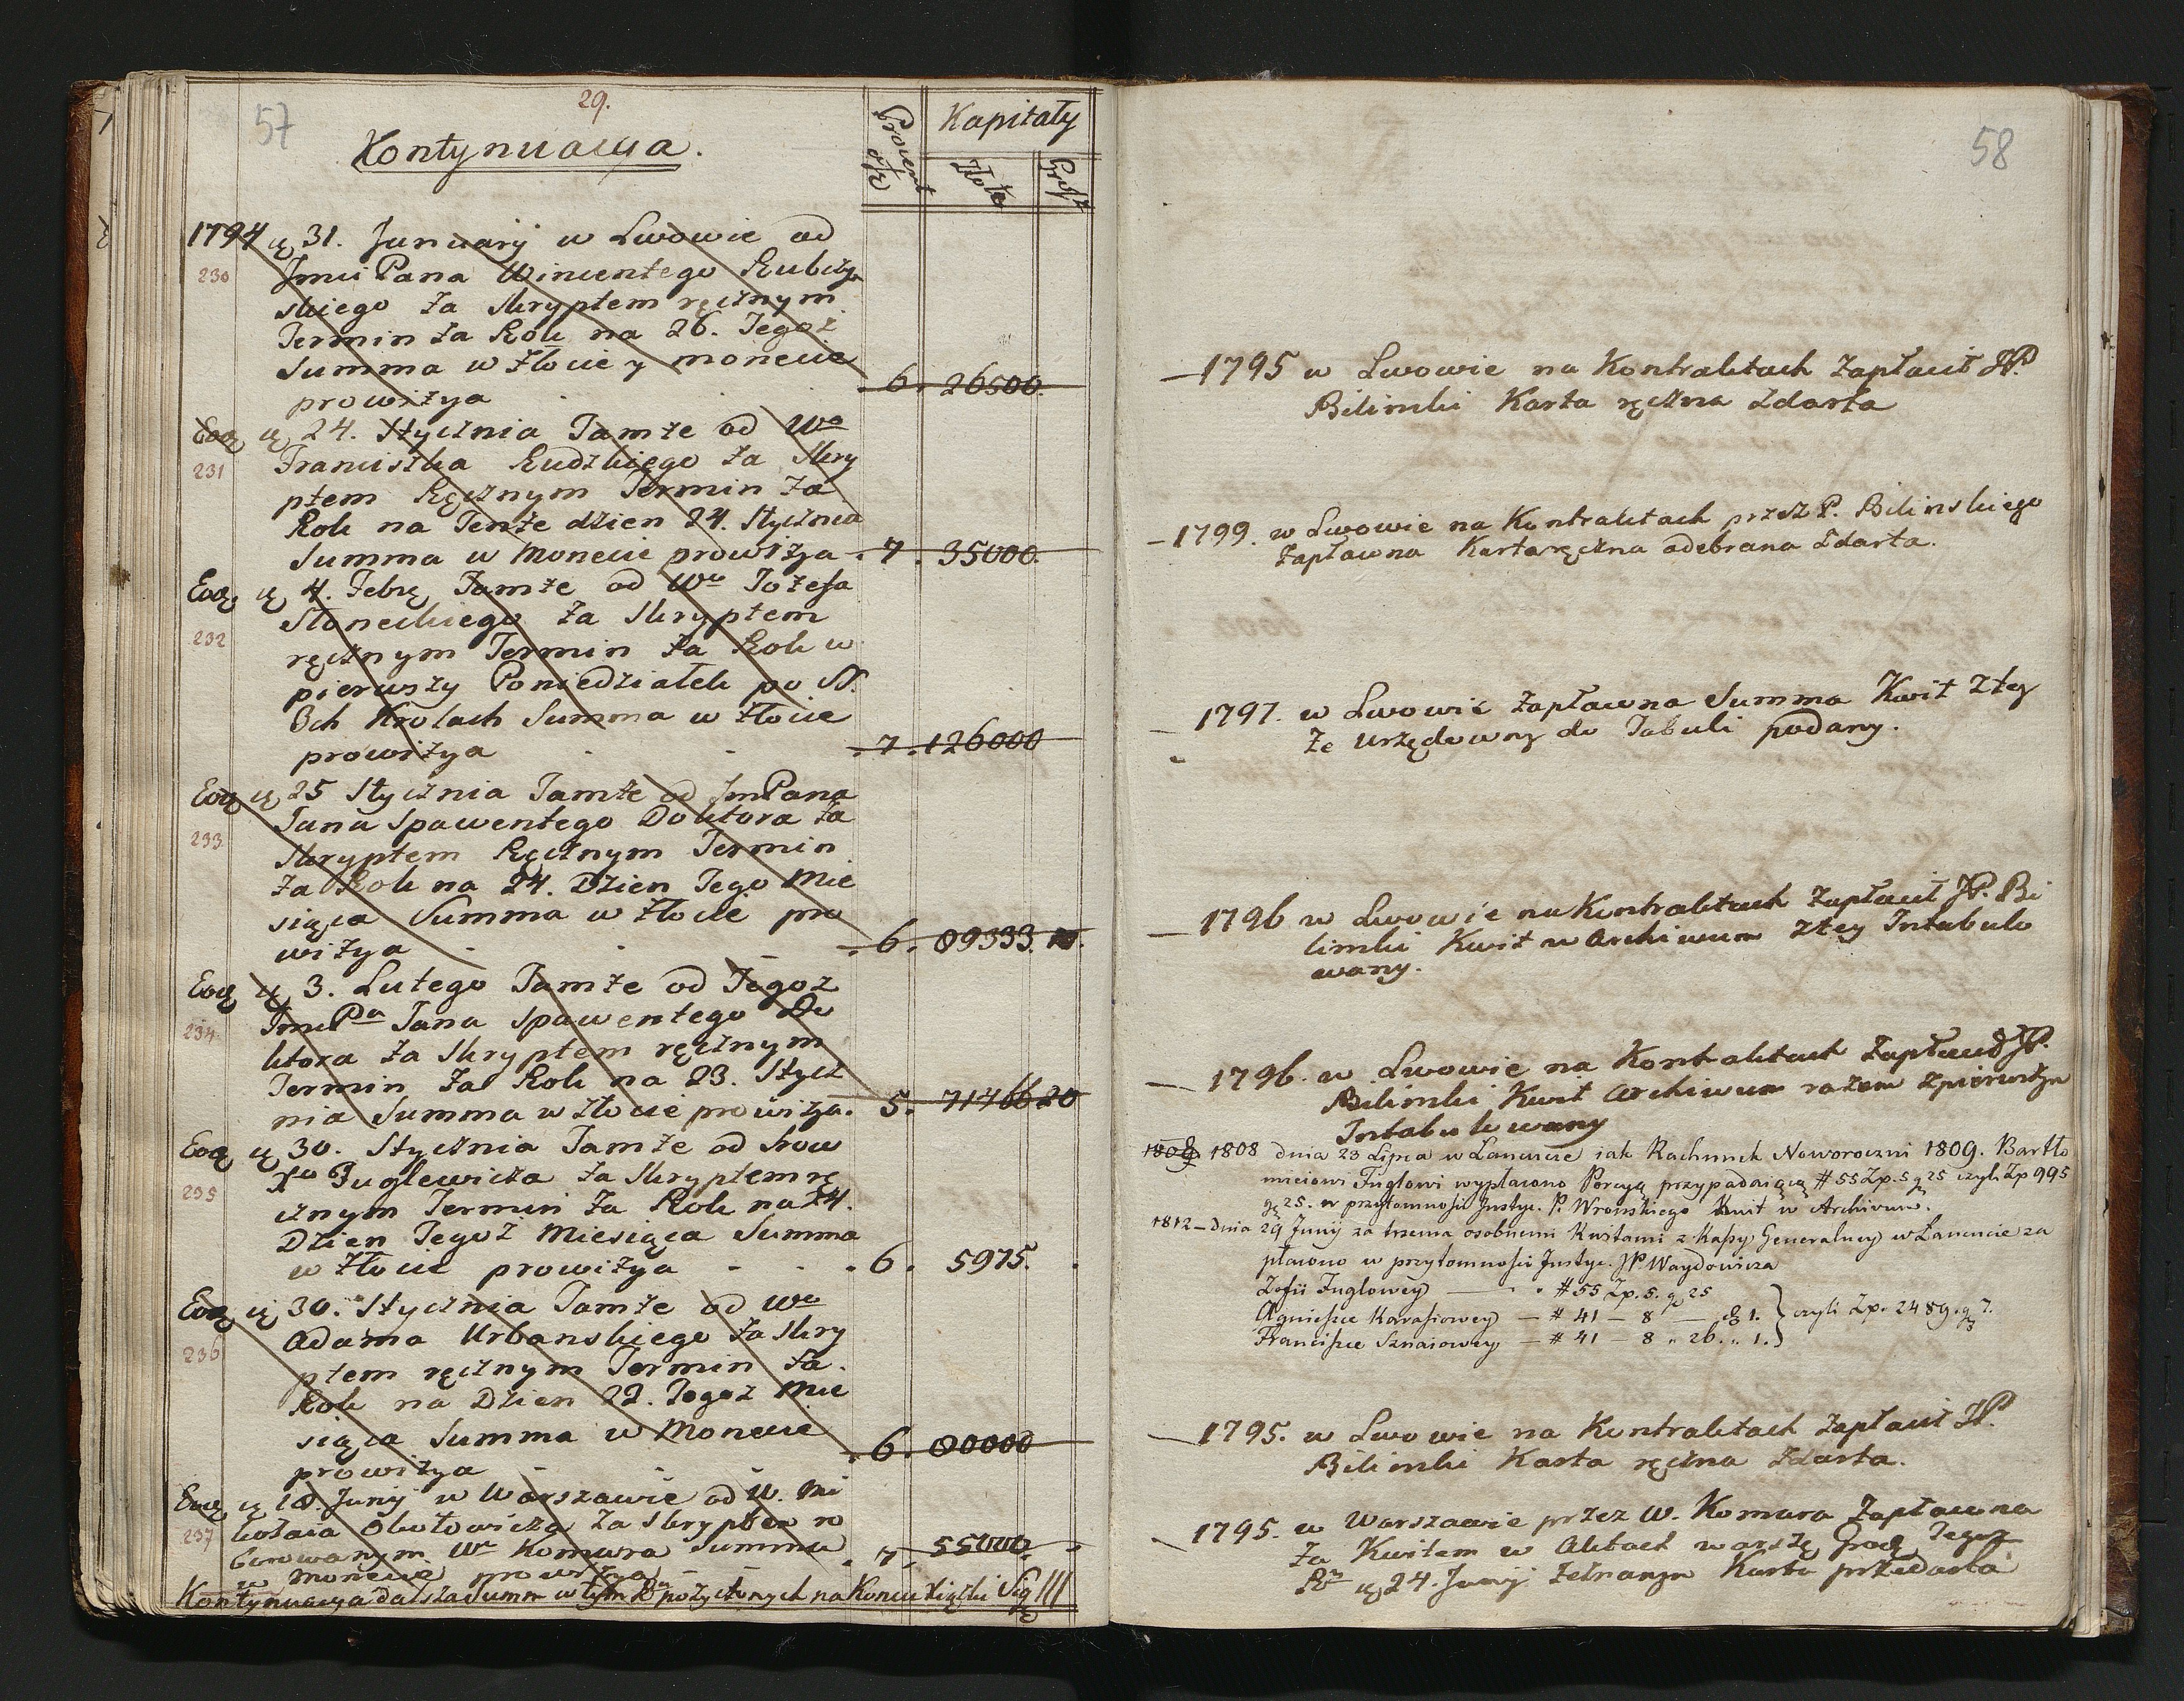 57
29.
Kontynuacya.
Procent od %
Kapitały
Złote
Grosz
1794 ię 31. January w Lwowie od
230
Jmci Pana Wincentego Rubczy
skiego za Skryptem ręcznym
Termin za Rok na 26. Tegoż
Summa w Złocie y monecie
prowizya . 6. 26500.
Eoq ię 24. Stycznia Tamże od Wo
231
Franciszka Rudzkiego za Skry
ptem Ręcznym Termin za
Rok na Tenże dzien 24. Stycznia
Summa w Monecie prowizya . 7. 35000.
Eoq. ię 4. Febrę Tamże od Wo Jozefa
232
Słoneckiego za Skryptem
ręcznym Termin za Rok w
pierwszy Poniedziałek po S.
3ch Krolach Summa w złocie
prowizya . 7. 126000
Eoq ię 25 Stycznia Tamże od JmPana
233
Jana Spawentego Doktora za
Skryptem Ręcznym Termin
za Rok na 24. Dzien Tego Mie
siąca Summa w Złocie pro
wizya . 6. 89333. 10.
Eoq ię 3. Lutego Tamże od Tegoż
234
JmcPa Jana Spawentego Do
ktora za Skryptem ręcznym
Termin za Rok na 23. Stycz
nia Summa w złocie prowizya. 5. 71466 20
Eoq ię 30. Stycznia Tamże od
235
Fuglewicza za Skryptem rę
cznym Termin za Rok na 24.
Dzien Tegoż Miesiąca Summa
w Złocie prowizya - - . 6. 5975.
Eoq ię 30. Stycznia Tamże od Wo
236
Adama Urbanskiego za Skry
ptem ręcznym Termin za
Rok na Dzien 22. Tegoż Mie
siąca Summa w Monecie
prowizya - - . 6. 80000
Eoq ię 18. Juny w Warszawie od W. Mi
237
kołaia Obutowicza za Skryptem ro
borowanym Wo Komara Summa . 7. 55000.
w Monecie prowizya
Kontynuacya dalsza Summ w tym Ru pożyczonych na Koncu xiążki Sig III
58
— 1795 w Lwowie na Kontraktach zapłacił JP.
Bilinski Karta ręczna zdarta
— 1799. w Lwowie na Kontraktach przesz P. Bilinskiego
zapłacona Karta ręczna odebrana zdarta.
— 1797. w Lwowie zapłacona Summa Kwit z tey
że urzędowny do Tabuli podany.
— 1796 w Lwowie na Kontraktach zapłacił JP. Bi
linski Kwit w Archiwum z tey Intabulo
wany.
— 1796. w Lwowie na Kontraktach zapłacił JP.
Bilinski Kwit Archiwum razem z pierwszym
Intabulowany
1809 1808 dnia 23 Lipca w Łancucie iak Rachunek Noworoczni 1809. Bartło
mieiowi Fuglowi wypłacono Porcyą przypadaiącą # 55 Zp. 5 g 25 czyli Zp 995
g 25. w przytomności Justyc. P. Wronskiego Kwit w Archivum.
1812 — dnia 29 Junij za trzema osobnemi Kwitami z Kassy Generalney w Łancucie za
płacono w przytomności Justyc. JP. Waydowicza
Zofii Fuglowey — . # 55 Zp. 5. g 25
Agnieszce Karasiowey — # 41 — 8 — & 1. } czyli Zp. 2489. g 7.
Franciszce Sznaiowey — # 41 — 8 „ 26. „ 1.
— 1795. w Lwowie na Kontraktach zapłacił JP.
Bilinski Karta ręczna zdarta.
— 1795. w Warszawie przez W. Komara zapłacona
za Kwitem w Aktach warszę Grod Tegoż
Ru ię 24. Juny zeznanym Karta przedarta